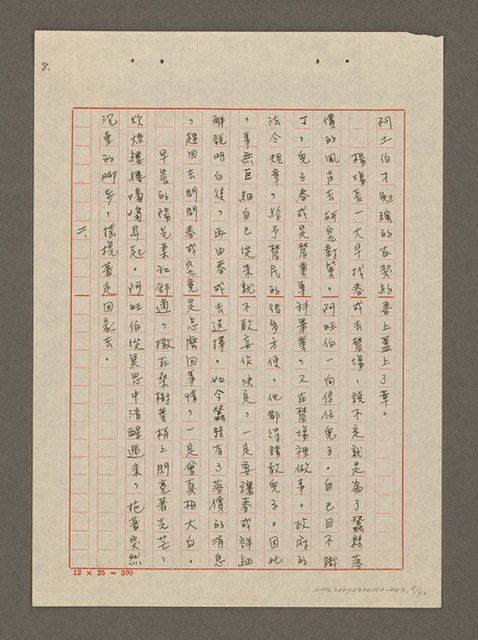 8.
阿土伯才勉強的在契約書上蓋上了章。
楊場長一大早找春成去蠶場，說不定就是為了蠶絲落
價的風聲去研究對策。阿旺伯一向信任兒子。自己目不識
丁，兒子春成是蠶業專科畢業，又在蠶場裡做事。政府的
法令規章，給予蠶民的很多方便，他都得請教兒子。因此
，事無巨細自己從來就不敢妄作決定，一定要讓春成詳細
解說明白後，再由春成去選擇。如今蠶絲有了落價的消息
，趕回去問問春成究竟是怎麼回事情，一定會真相大白。
早晨的陽光柔和舒適，撒在桑樹葉梢上閃亮著光芒，
炊煙縷縷嬝嬝昇起。阿旺伯從冥思中清醒過來，拖著突然
沉重的腳步，搖搖著走回家去。
二、
12 × 25 = 300